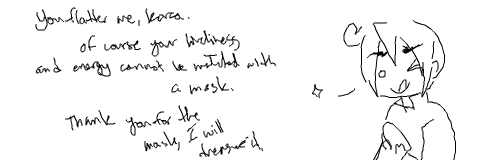 You flatter me, korca.
of course your liveliness
and energy cannot be matched with
a mask.
Thank you for the
mask, I will
treasure it.